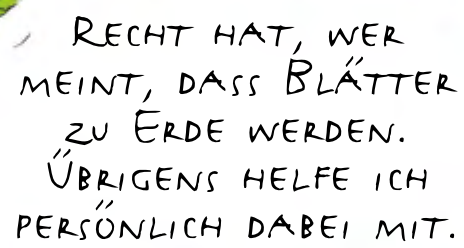 Recht hat, wer
meint, dass Blätter
zu Erde werden.
Übrigens helfe ich
persönlich dabei mit.